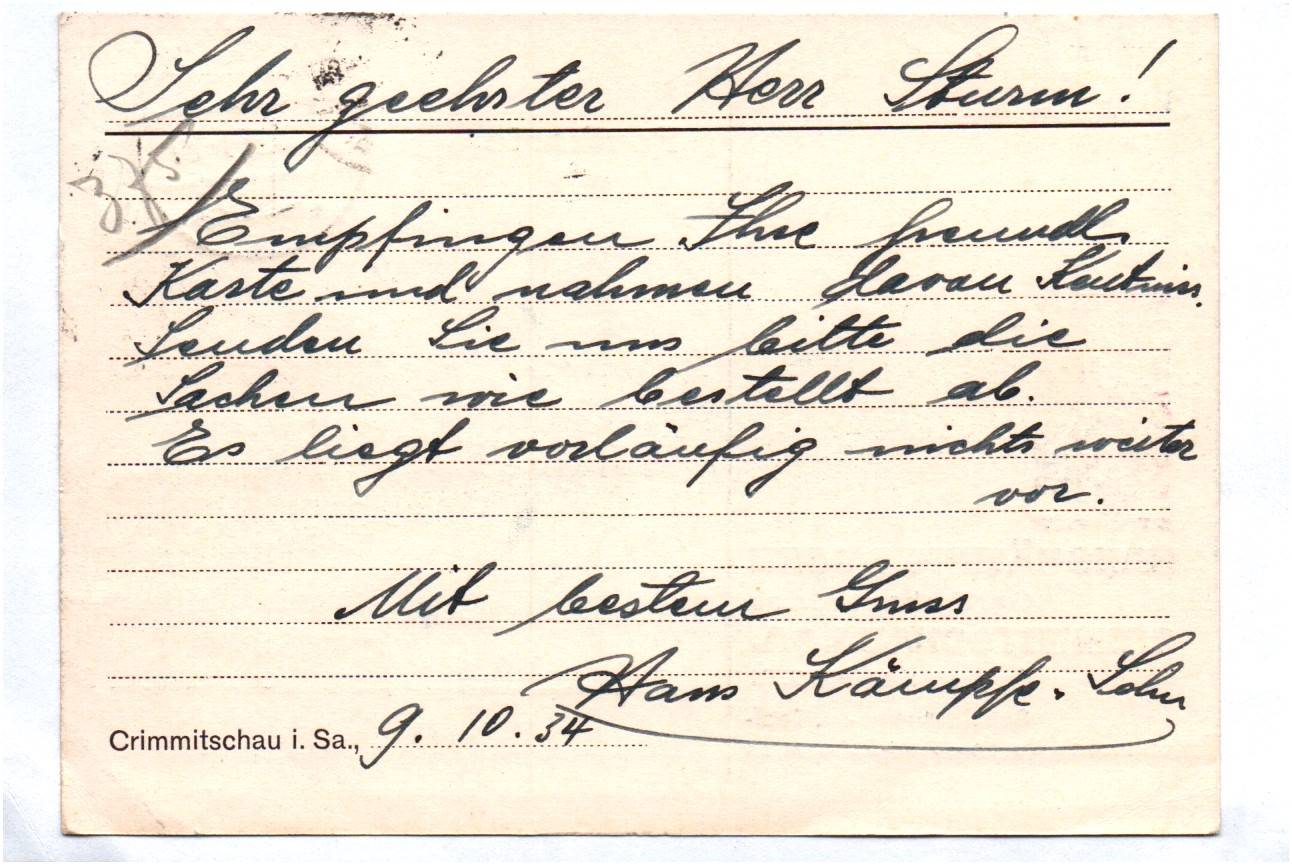 Sehr geehrter Herr Sturm!
375
Empfingen Ihre freundl.
Karte und nahmen davon Kentniss.
Senden Sie uns bitte die
Sachen wie bestellt ab.
Es liegt vorläufig nichts weiter
vor.
Mit bestem Gruss
Hans Kämpfe. Sohn
Crimmitschau i. Sa., 9. 10. 34